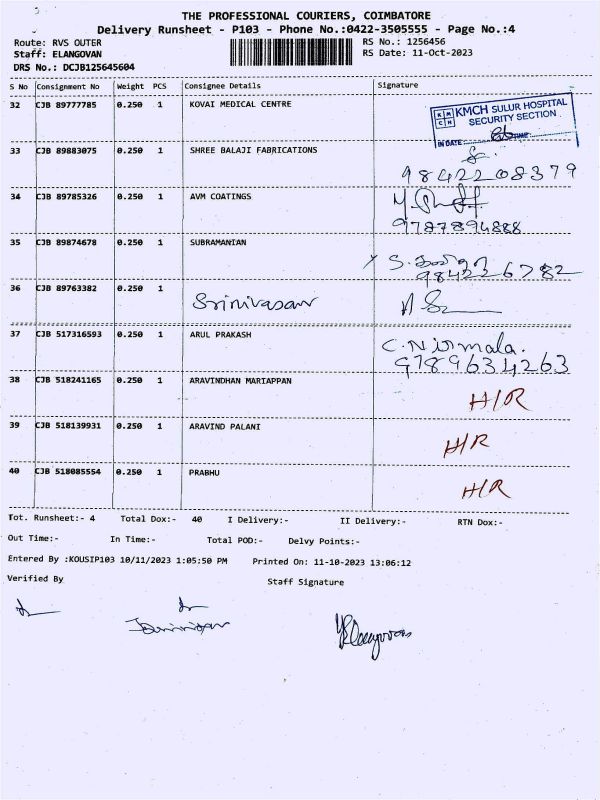 THE PROFESSIONAL COURIERS, COIMBATORE
Delivery Runsheet - P103 - Phone No.:0422-3505555 - Page No.:4
Route: RVS OUTER
RS No.: 1256456
Staff: ELANGOVAN
RS Date: 11-Oct-2023
DRS No.: DCJB125645604
S No Consignment No Weight PCS Consignee Details Signature
32 CJB 89777785 0.250 1 KOVAI MEDICAL CENTRE
KMCH SULUR HOSPITAL
SECURITY SECTION
IN DATE: TIME
33 CJB 89883075 0.250 1 SHREE BALAJI FABRICATIONS
9842208379
34 CJB 89785326 0.250 1 AVM COATINGS
9787894888
35 CJB 89874678 0.250 1 SUBRAMANIAN
984226782
36 CJB 89763382 0.250 1 Srinivasan
37 CJB 517316593 0.250 1 ARUL PRAKASH
C. Nirmala.
9789634263
38 CJB 518241165 0.250 1 ARAVINDHAN MARIAPPAN
H/R
39 CJB 518139931 0.250 1 ARAVIND PALANI
H/R
40 CJB 518085554 0.250 1 PRABHU
H/R
Tot. Runsheet:- 4 Total Dox:- 40 I Delivery:- II Delivery:- RTN Dox:-
Out Time:- In Time:- Total POD:- Delvy Points:-
Entered By :KOUSIP103 10/11/2023 1:05:50 PM Printed On: 11-10-2023 13:06:12
Verified By Staff Signature